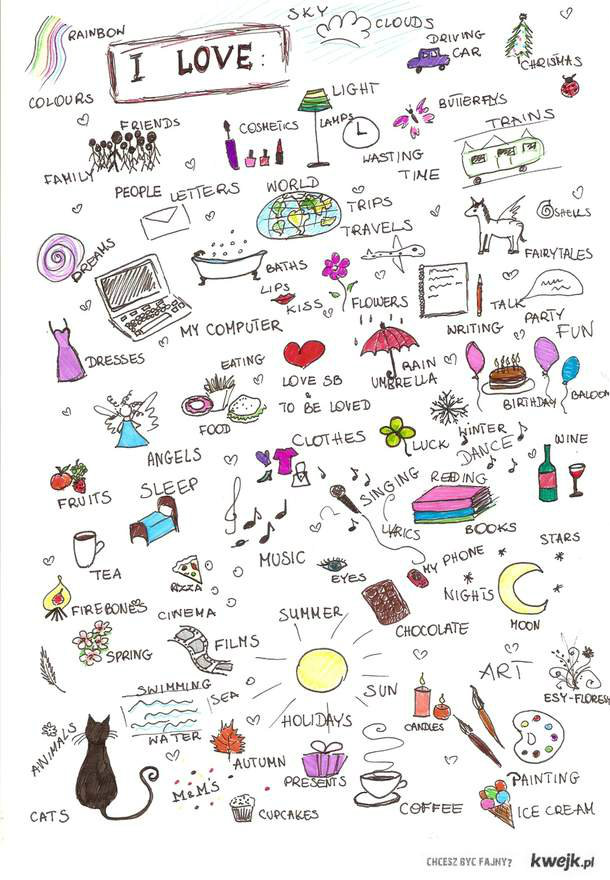 SKY
CLOUDS
RAINBOW
I LOVE:
DRIVING
CAR
CHRISMAS
COLOURS
LIGHT
BUTTERFLYS
FRIENDS
COSMETICS
LAMPS
TRAINS
FAMILY
WASTING
TIME
PEOPLE
LETTERS
WORLD
TRIPS
SHELLS
TRAVELS
DREAMS
BATHS
FAIRYTALES
LIPS
KISS
FLOWERS
TALK
MY COMPUTER
WRITING
PARTY
FUN
DRESSES
EATING
LOVE SB
& TO BE LOVED
RAIN
UMBRELLA
BIRTHDAY
BALOONS
FOOD
ANGELS
CLOTHES
LUCK
WINTER
DANCE
WINE
FRUITS
SLEEP
SINGING
REDING
LYRICS
BOOKS
TEA
MUSIC
EYES
MY PHONE
STARS
PIZZA
NIGHTS
FIREBONES
CINEMA
SUMMER
CHOCOLATE
MOON
SPRING
FILMS
SWIMMING
SEA
SUN
ART
ESY-FLORESY
ANIMALS
WATER
HOLIDAYS
CANDLES
AUTUMN
PRESENTS
PAINTING
CATS
M&M'S
CUPCAKES
COFFEE
ICE CREAM
CHCESZ BYC FAJNY?
kwejk.pl